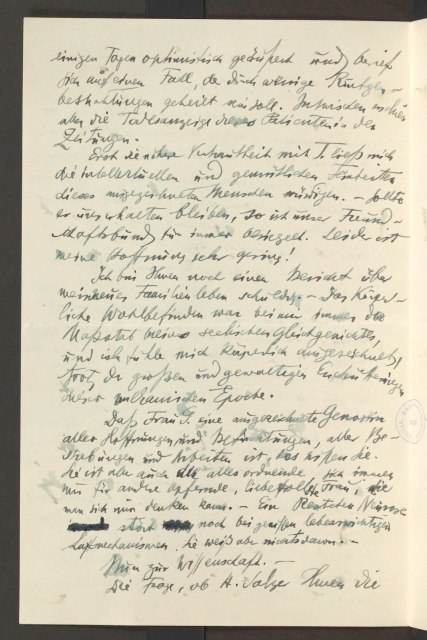 einigen Tagen optimistisch geäußert und berief
sich auf einen Fall, der durch wenige Röntgen-
bestrahlungen geheilt sein soll. Inzwischen erschien
aber die Todesanzeige dieses Patienten in den
Zeitungen.
Erst die nähere Vertrautheit mit T. ließ mich
die intellectuellen und gemütlichen Feinheiten
dieses ausgezeichneten Menschen würdigen. – Sollte
er uns erhalten bleiben, so ist unser Freund-
schaftsbund für immer besiegelt. Leider ist
meine Hoffnung sehr gering!
Ich bin Ihnen noch einen Bericht über
mein neues Familienleben schuldig. – Das körper-
liche Wohlbefinden war bei mir immer der
Maßstab meines seelischen Gleichgewichtes,
und ich fühle mich körperlich ausgezeichnet,
trotz der großen und gewaltigen Erschütterungen
dieser vulkanischen Epoche.
Daß Frau G. eine ausgezeichnete Genossin
aller Hoffnungen und Befürchtungen, aller Be-
strebungen und Arbeiten ist, das wissen Sie.
Sie ist aber auch die alles ordnende, sich immer
nur für andere opfernde, liebevollste Frau, die
man sich nur denken kann. – Ein Restchen Neurose
stört noch bei gewissen lebenswichtigen
Luftmechanismen, sie weiß aber nichts davon. –
Nun zur Wissenschaft. –
Die Frage, ob A. Ihnen die